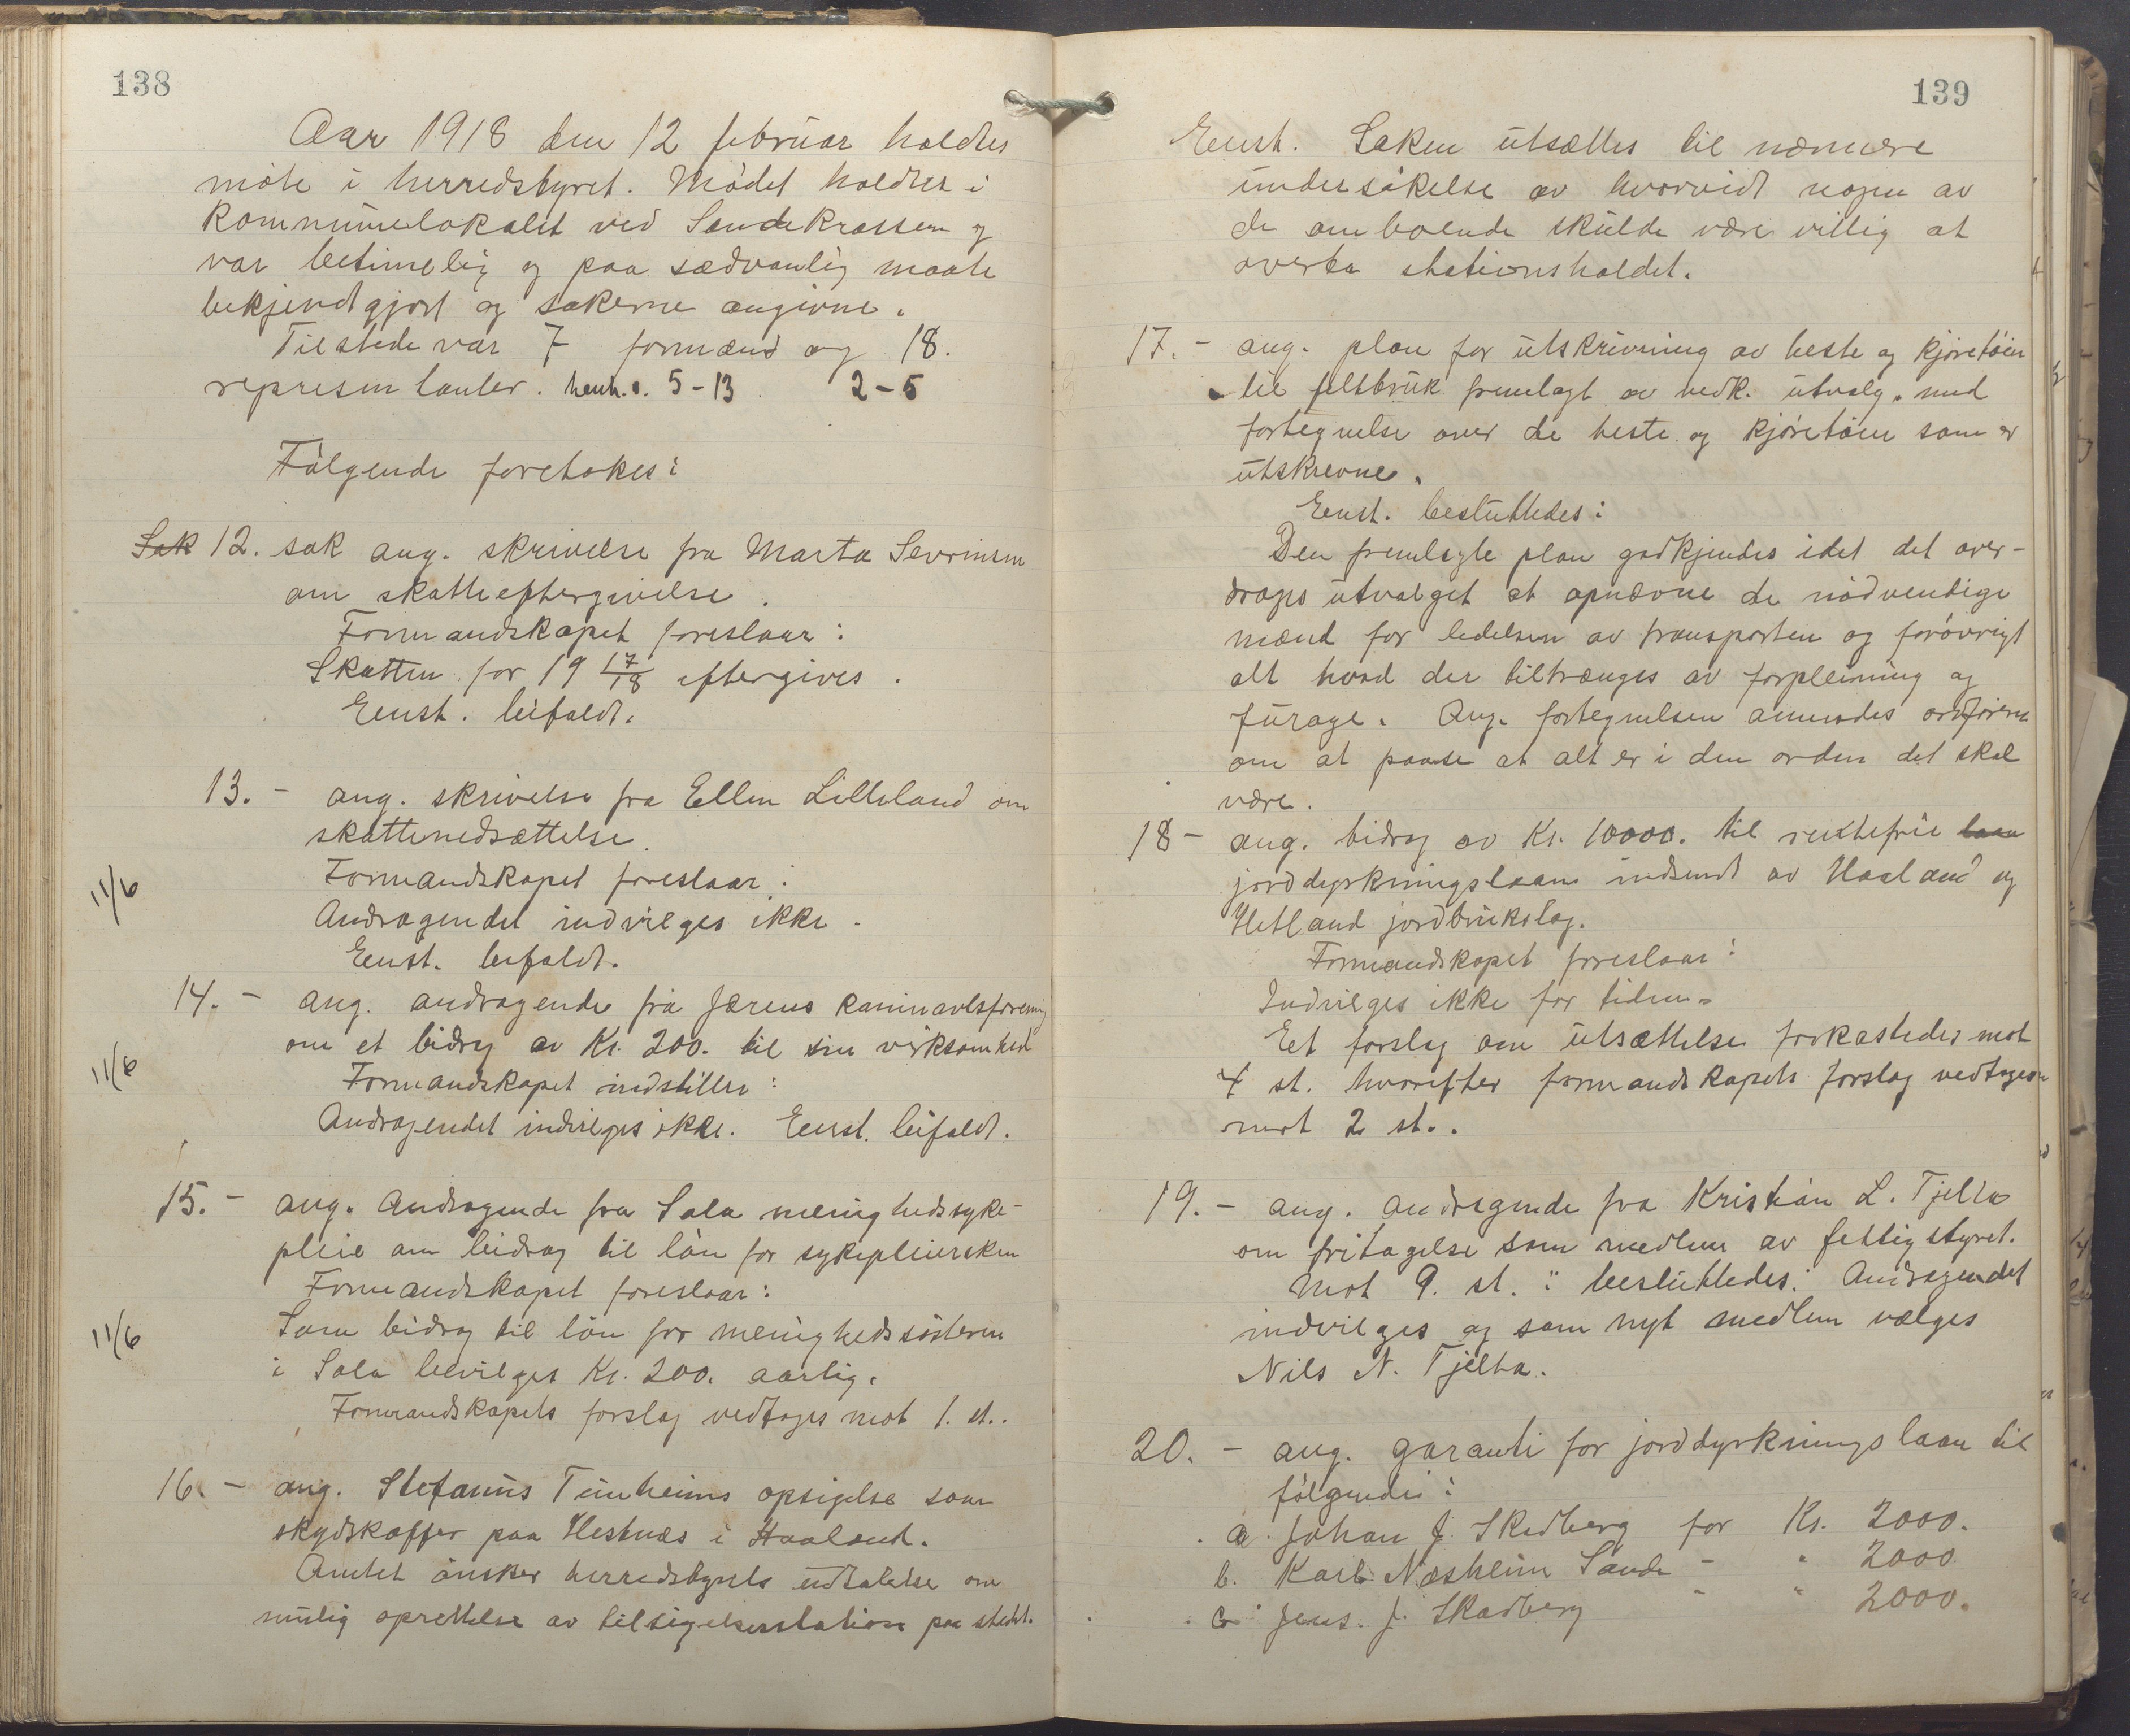 138
Aar 1918 den 12 februar holdtes
möte i herredstyret. Mödet holdtes i
Kommunelokalet ved Sandekrossen og
var betimelig og paa sædvanlig maate
bekjendtgjort og sakerne angivne.
Tilstede var 7 formænd og 18.
representanter. henh. 5-13. 2-5
Fölgende foretokes:
Sak 12. sak ang. skrivelse fra Marta Sevrinsen
om skatteeftergivelse.
Formandskapet foreslaar:
Skatten for 19 17/18 eftergives.
Enst. bifaldt.
13. - ang. skrivelse fra Ellen Lilleland om
skattenedsættelse.
Formandskapet foreslaar:
11/6
Andragendet indvilges ikke.
Enst. bifaldt.
14. - ang. andragende fra Jærens Kaninavlsforening
om et bidrag av Kr. 200. til sin virksomhed
11/6
Formandskapet indstiller:
Andragendet indvilges ikke. Enst. bifaldt.
15. - ang. Andragende fra Sola menighedssyke-
pleie om bidrag til lön for sykepleiersken
Formandskapet foreslaar:
11/6
Som bidrag til lön for menighedssösteren
i Sola bevilges Kr. 200. aarlig.
Formandskapets forslag vedtages mot 1. st..
16. - ang. Stefanus Tunheims opsigelse som
skydskaffer paa Hestnæs i Haaland.
Amtet önsker herredstyrets uttalelse om
mulig oprettelse av tilsigelsesstation paa stedet.
139
Enst. Saken utsættes til nærmere
undersökelse av hvorvidt nogen av
de omboende skulde være villig at
overta stationsholdet.
17. - ang. plan for utskrivning av heste og kjöretöier
til feltbruk fremlagt av vedk. utvalg. med
fortegnelse over de heste og kjöretöier som er
utskrevne.
Enst. besluttedes:
Den fremlagte plan godkjendes idet det over-
drages utvalget at opnævne de nödvendige
mænd for ledelsen av transporten og forövrigt
alt hvad der tiltrænges av forpleining og
furage. Ang. fortegnelsen anmodes ordföreren
om at paase at alt er i den orden det skal
være.
18 - ang. bidrag av Kr. 10000. til rentefrie laan
jorddyrkningslaan indsendt av Haaland og
Hetland jordbrukslag.
Formandskapet foreslaar:
Indvilges ikke for tiden.
Eet forslag om utsættelse forkastedes mot
4 st. hvorefter formandskapets forslag vedtages
mot 2 st..
19. - ang. andragende fra Kristian L. Tjelta
om fritagelse som medlem av fattigstyret.
Mot 9. st. besluttedes: Andragendet
indvilges og som nyt medlem vælges
Nils N. Tjelta.
20. - ang. garanti for jorddyrkningslaan til
fölgende:
a. Johan J. Skadberg for Kr. 2000.
b. Karl Næsheim Sande - " 2000
c. Jens. J. Skadberg - " 2000.